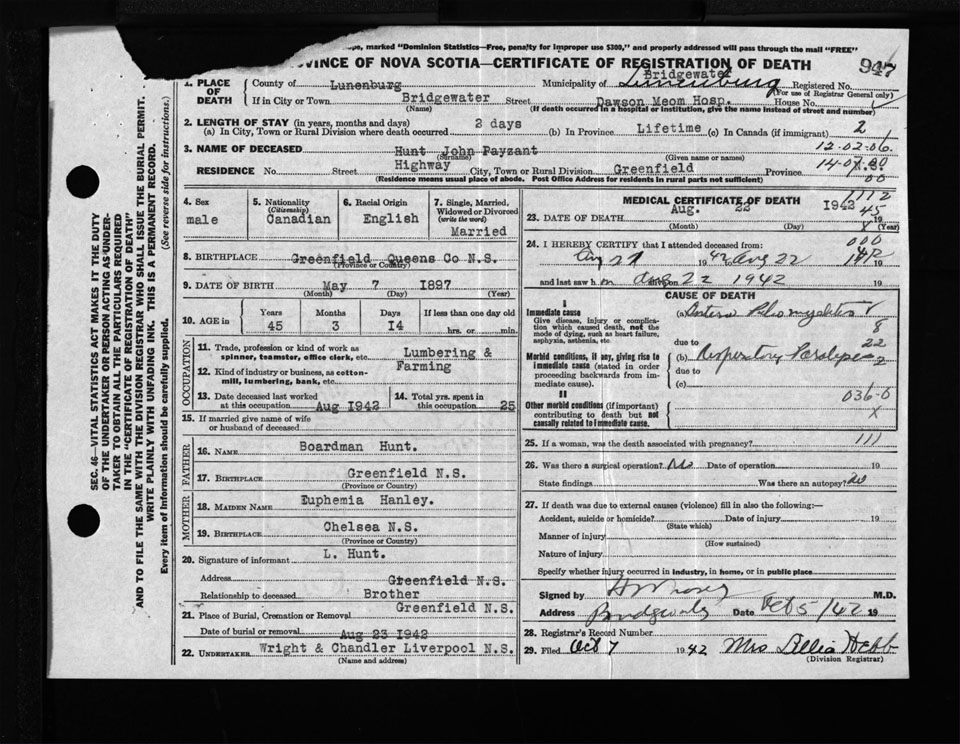 ope, marked "Dominion Statistics—Free, penalty for improper use $300," and properly addressed will pass through the mail "FREE"
VINCE OF NOVA SCOTIA—CERTIFICATE OF REGISTRATION OF DEATH
947
1. PLACE OF DEATH
County of Lunenburg Municipality of Bridgewater Lunenburg Registered No.
(For use of Registrar General only)
If in City or Town Bridgewater Street Dawson Meom Hosp. House No.
(Name) (If death occurred in a hospital or institution, give its name instead of street and number)
2. LENGTH OF STAY (in years, months and days)
(a) In City, Town or Rural Division where death occurred 2 days (b) In Province Lifetime (c) In Canada (if immigrant) 2
12-02-06.
3. NAME OF DECEASED Hunt John Payzant
(Surname) (Given name or names)
RESIDENCE No. Street Highway City, Town or Rural Division Greenfield Province
(Residence means usual place of abode. Post Office Address for residents in rural parts not sufficient)
00
4. Sex male
5. Nationality (Citizenship) Canadian
6. Racial Origin English
7. Single, Married, Widowed or Divorced (write the word) Married
8. BIRTHPLACE Greenfield Queens Co N.S.
(Province or Country)
9. DATE OF BIRTH May 7 1897
(Month) (Day) (Year)
10. AGE in Years Months Days If less than one day old
45 3 14 hrs. or min.
OCCUPATION
11. Trade, profession or kind of work as spinner, teamster, office clerk, etc. Lumbering &
Farming
12. Kind of industry or business, as cotton-mill, lumbering, bank, etc.
13. Date deceased last worked at this occupation Aug 1942
14. Total yrs. spent in this occupation 25
15. If married give name of wife or husband of deceased
FATHER
16. NAME Boardman Hunt.
17. BIRTHPLACE Greenfield N.S.
(Province or Country)
MOTHER
18. MAIDEN NAME Euphemia Hanley.
19. BIRTHPLACE Chelsea N.S.
(Province or Country)
20. Signature of informant L. Hunt.
Address Greenfield N.S.
Relationship to deceased Brother
21. Place of Burial, Cremation or Removal Greenfield N.S.
Date of burial or removal Aug 23 1942
22. UNDERTAKER Wright & Chandler Liverpool N.S.
(Name and address)
MEDICAL CERTIFICATE OF DEATH
1112
23. DATE OF DEATH Aug. 22 1942 19
45
(Month) (Day) (Year)
24. I HEREBY CERTIFY that I attended deceased from:
000
Aug 21 1942 Aug 22 19
and last saw h m Aug 22 1942
CAUSE OF DEATH
I
Immediate cause
Give disease, injury or complication which caused death, not the mode of dying, such as heart failure, asphyxia, asthenia, etc
(a)
8
due to 22
Morbid conditions, if any, giving rise to immediate cause (stated in order proceeding backwards from immediate cause).
(b) Respiratory Paralysis 2
due to
(c)
II
036-0
Other morbid conditions (if important) contributing to death but not causally related to immediate cause.
X
25. If a woman, was the death associated with pregnancy? 111
26. Was there a surgical operation? No Date of operation 19
State findings Was there an autopsy? no
27. If death was due to external causes (violence) fill in also the following:—
Accident, suicide or homicide? Date of injury 19
(State which)
Manner of injury
(How sustained)
Nature of injury
Specify whether injury occurred in industry, in home, or in public place
Signed by M.D.
Address Bridgewater Date Feb 5/42 19
28. Registrar's Record Number
29. Filed Oct 7 1942 Mrs Lillia Hebb
(Division Registrar)
SEC. 46—VITAL STATISTICS ACT MAKES IT THE DUTY
OF THE UNDERTAKER OR PERSON ACTING AS UNDER-
TAKER TO OBTAIN ALL THE PARTICULARS REQUIRED
IN THE "CERTIFICATE OF REGISTRATION OF DEATH"
AND TO FILE THE SAME WITH THE DIVISION REGISTRAR WHO SHALL ISSUE THE BURIAL PERMIT.
WRITE PLAINLY WITH UNFADING INK. THIS IS A PERMANENT RECORD.
Every item of Information should be carefully supplied. (See reverse side for instructions.)